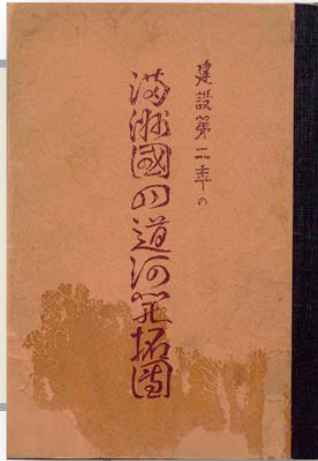 建設第二年の
満洲國四道河開拓團